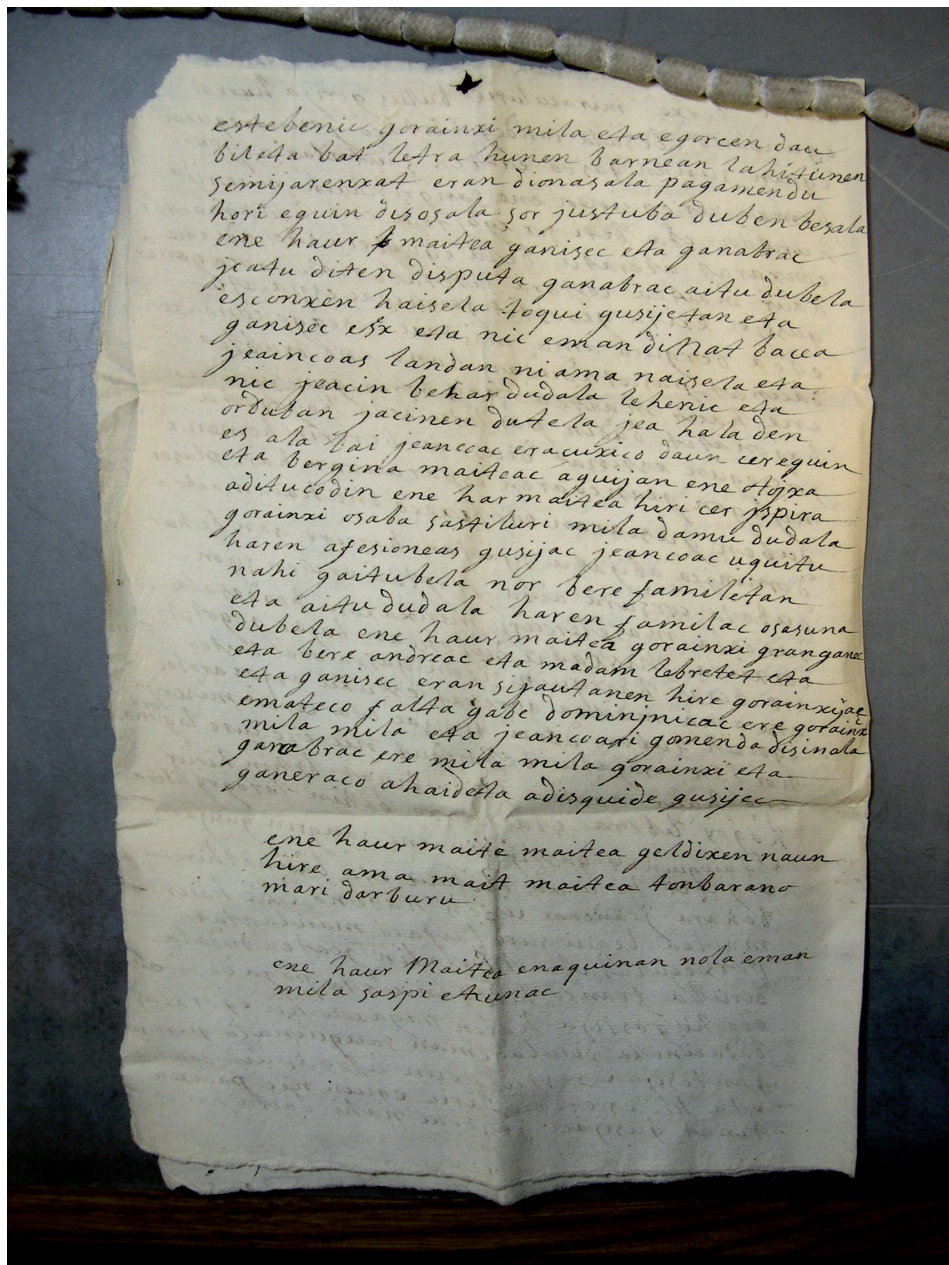 estebenic gorainxi mila eta egorcen dau
bileta bat letra hunen barnean lahitunen
semijarenxat eran dionasala pagamendu
hori eguin disosala sor justuba duben besala
ene haur maitea ganisec eta ganabrac
jcatu diten disputa ganabrac aitu dubela
esconxen haisela toqui gusijetan eta
ganisec esx eta nic eman diñat bacea
jeaincoas landan ni ama naisela eta
nic jeacin behar dudala lehenic eta
orduban jacinen dutela jea hala den
es ala bai jeancoac eracuxico daun cereguin
eta bergina maiteac aguijan ene otojxa
aditucodin ene har maitea hiri cer jspira
gorainxi osaba sastiluri mila damu dudala
haren afesioneas gusijac jeancoac uquitu
nahi gaitubela nor bere familetan
eta aitu dudala haren familac osasuna
dubela ene haur maitea gorainxi granganec
eta bere andreac eta madam lebretet eta
eta ganisec eran sijautanen hire gorainxijac
emateco falta gabe dominjnicac ere gorainx
mila mila eta jeancoari gomenda disinala
ganabrac ere mila mila gorainxi eta
ganeraco ahaideta adisquide gusijec
ene haur maite maitea geldixen naun
hire ama mait maitea tonbarano
mari darburu
ene haur Maitea enaquinan nola eman
mila saspi ehunac